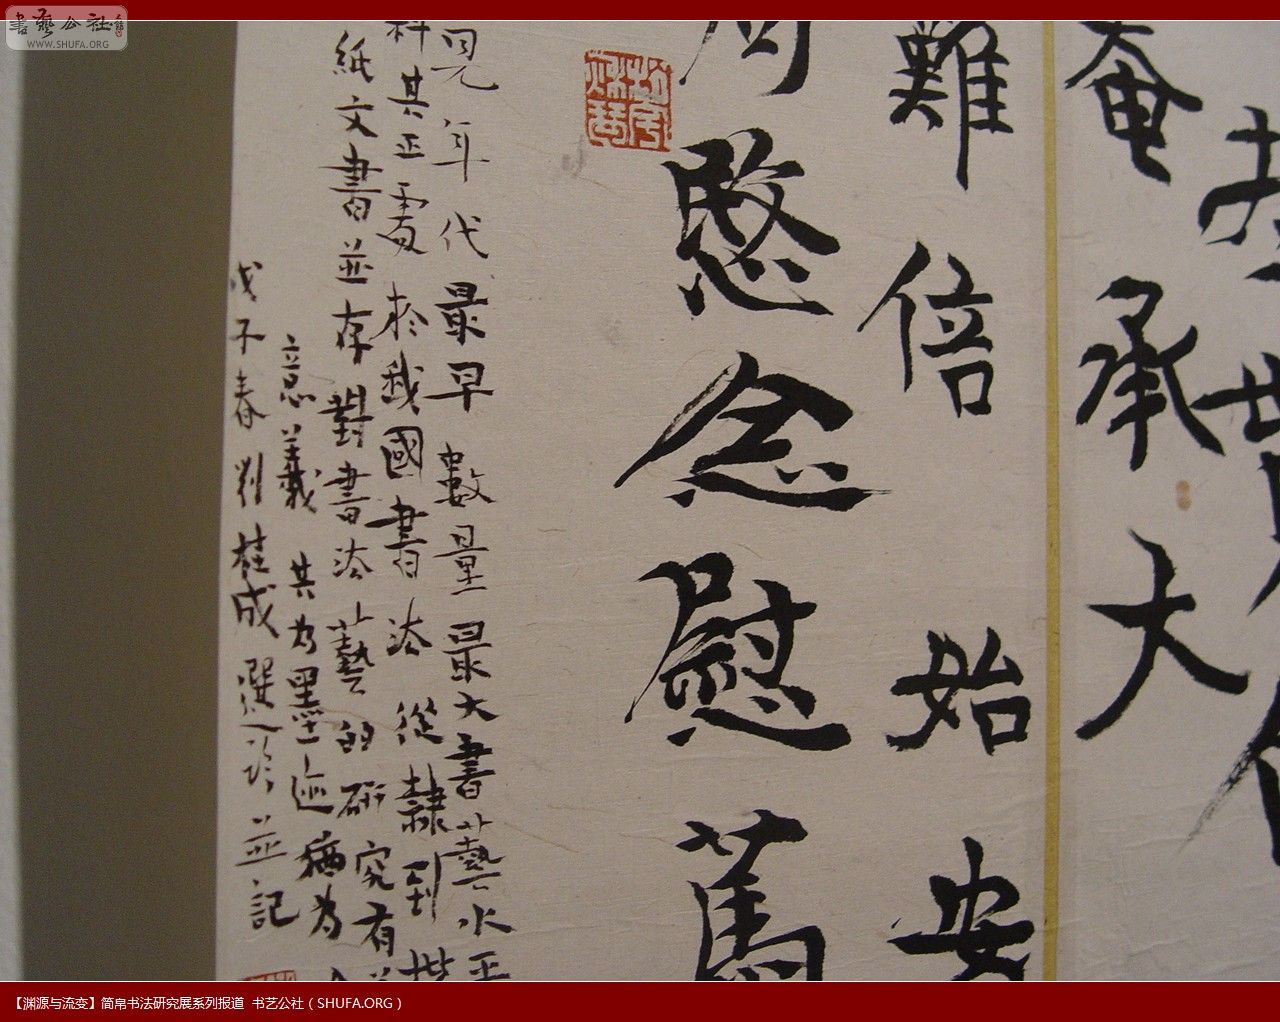 書藝公社
WWW.SHUFA.ORG
世
奄承大
難倍始安
愍念慰篤
見年代最早數量最大書藝水平
料其正處於我國書法從隸到楷
紙文書並存對書法藝的研究有
意義其為墨迹
戊子春劉桂成選臨並記
【渊源与流变】简帛书法研究展系列报道 书艺公社（SHUFA.ORG）